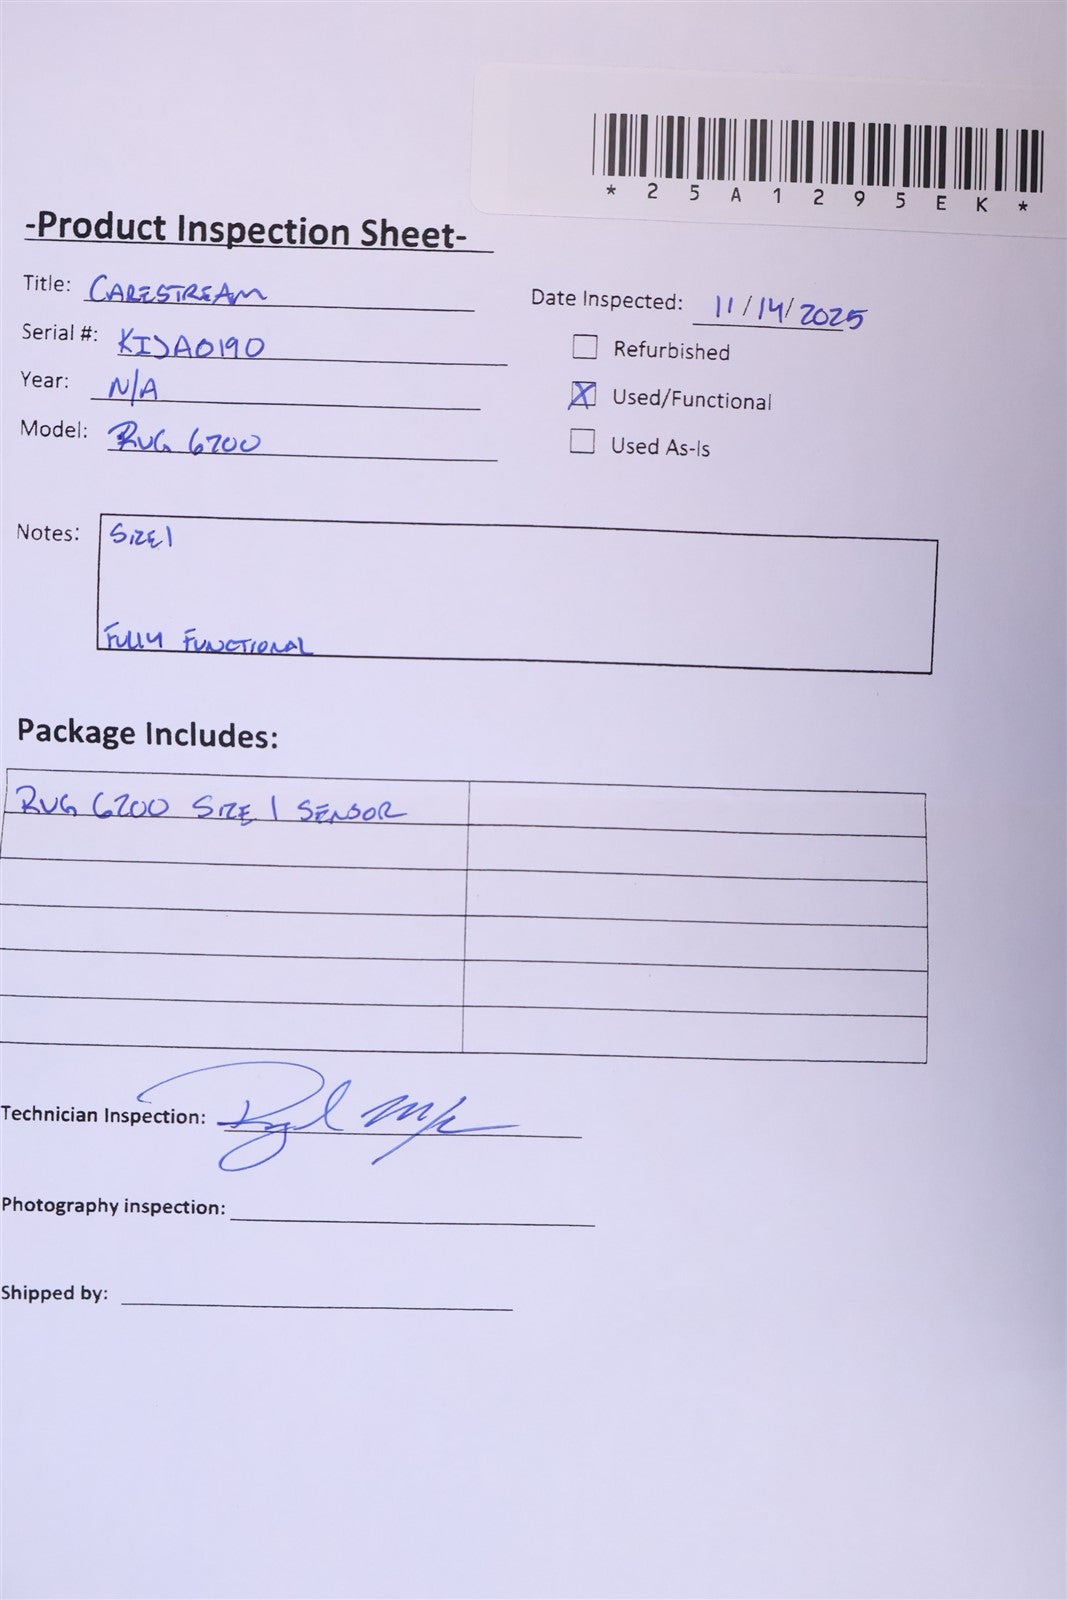 *25A1295EK*
-Product Inspection Sheet-
Title: CARESTREAM
Date Inspected: 11/14/2025
Serial #: KIJA0190
Refurbished
Year: N/A
X Used/Functional
Model: RVG 6200
Used As-Is
Notes: SIZE 1
FULLY FUNCTIONAL
Package Includes:
RVG 6200 SIZE 1 SENSOR
Technician Inspection:
Photography inspection:
Shipped by: